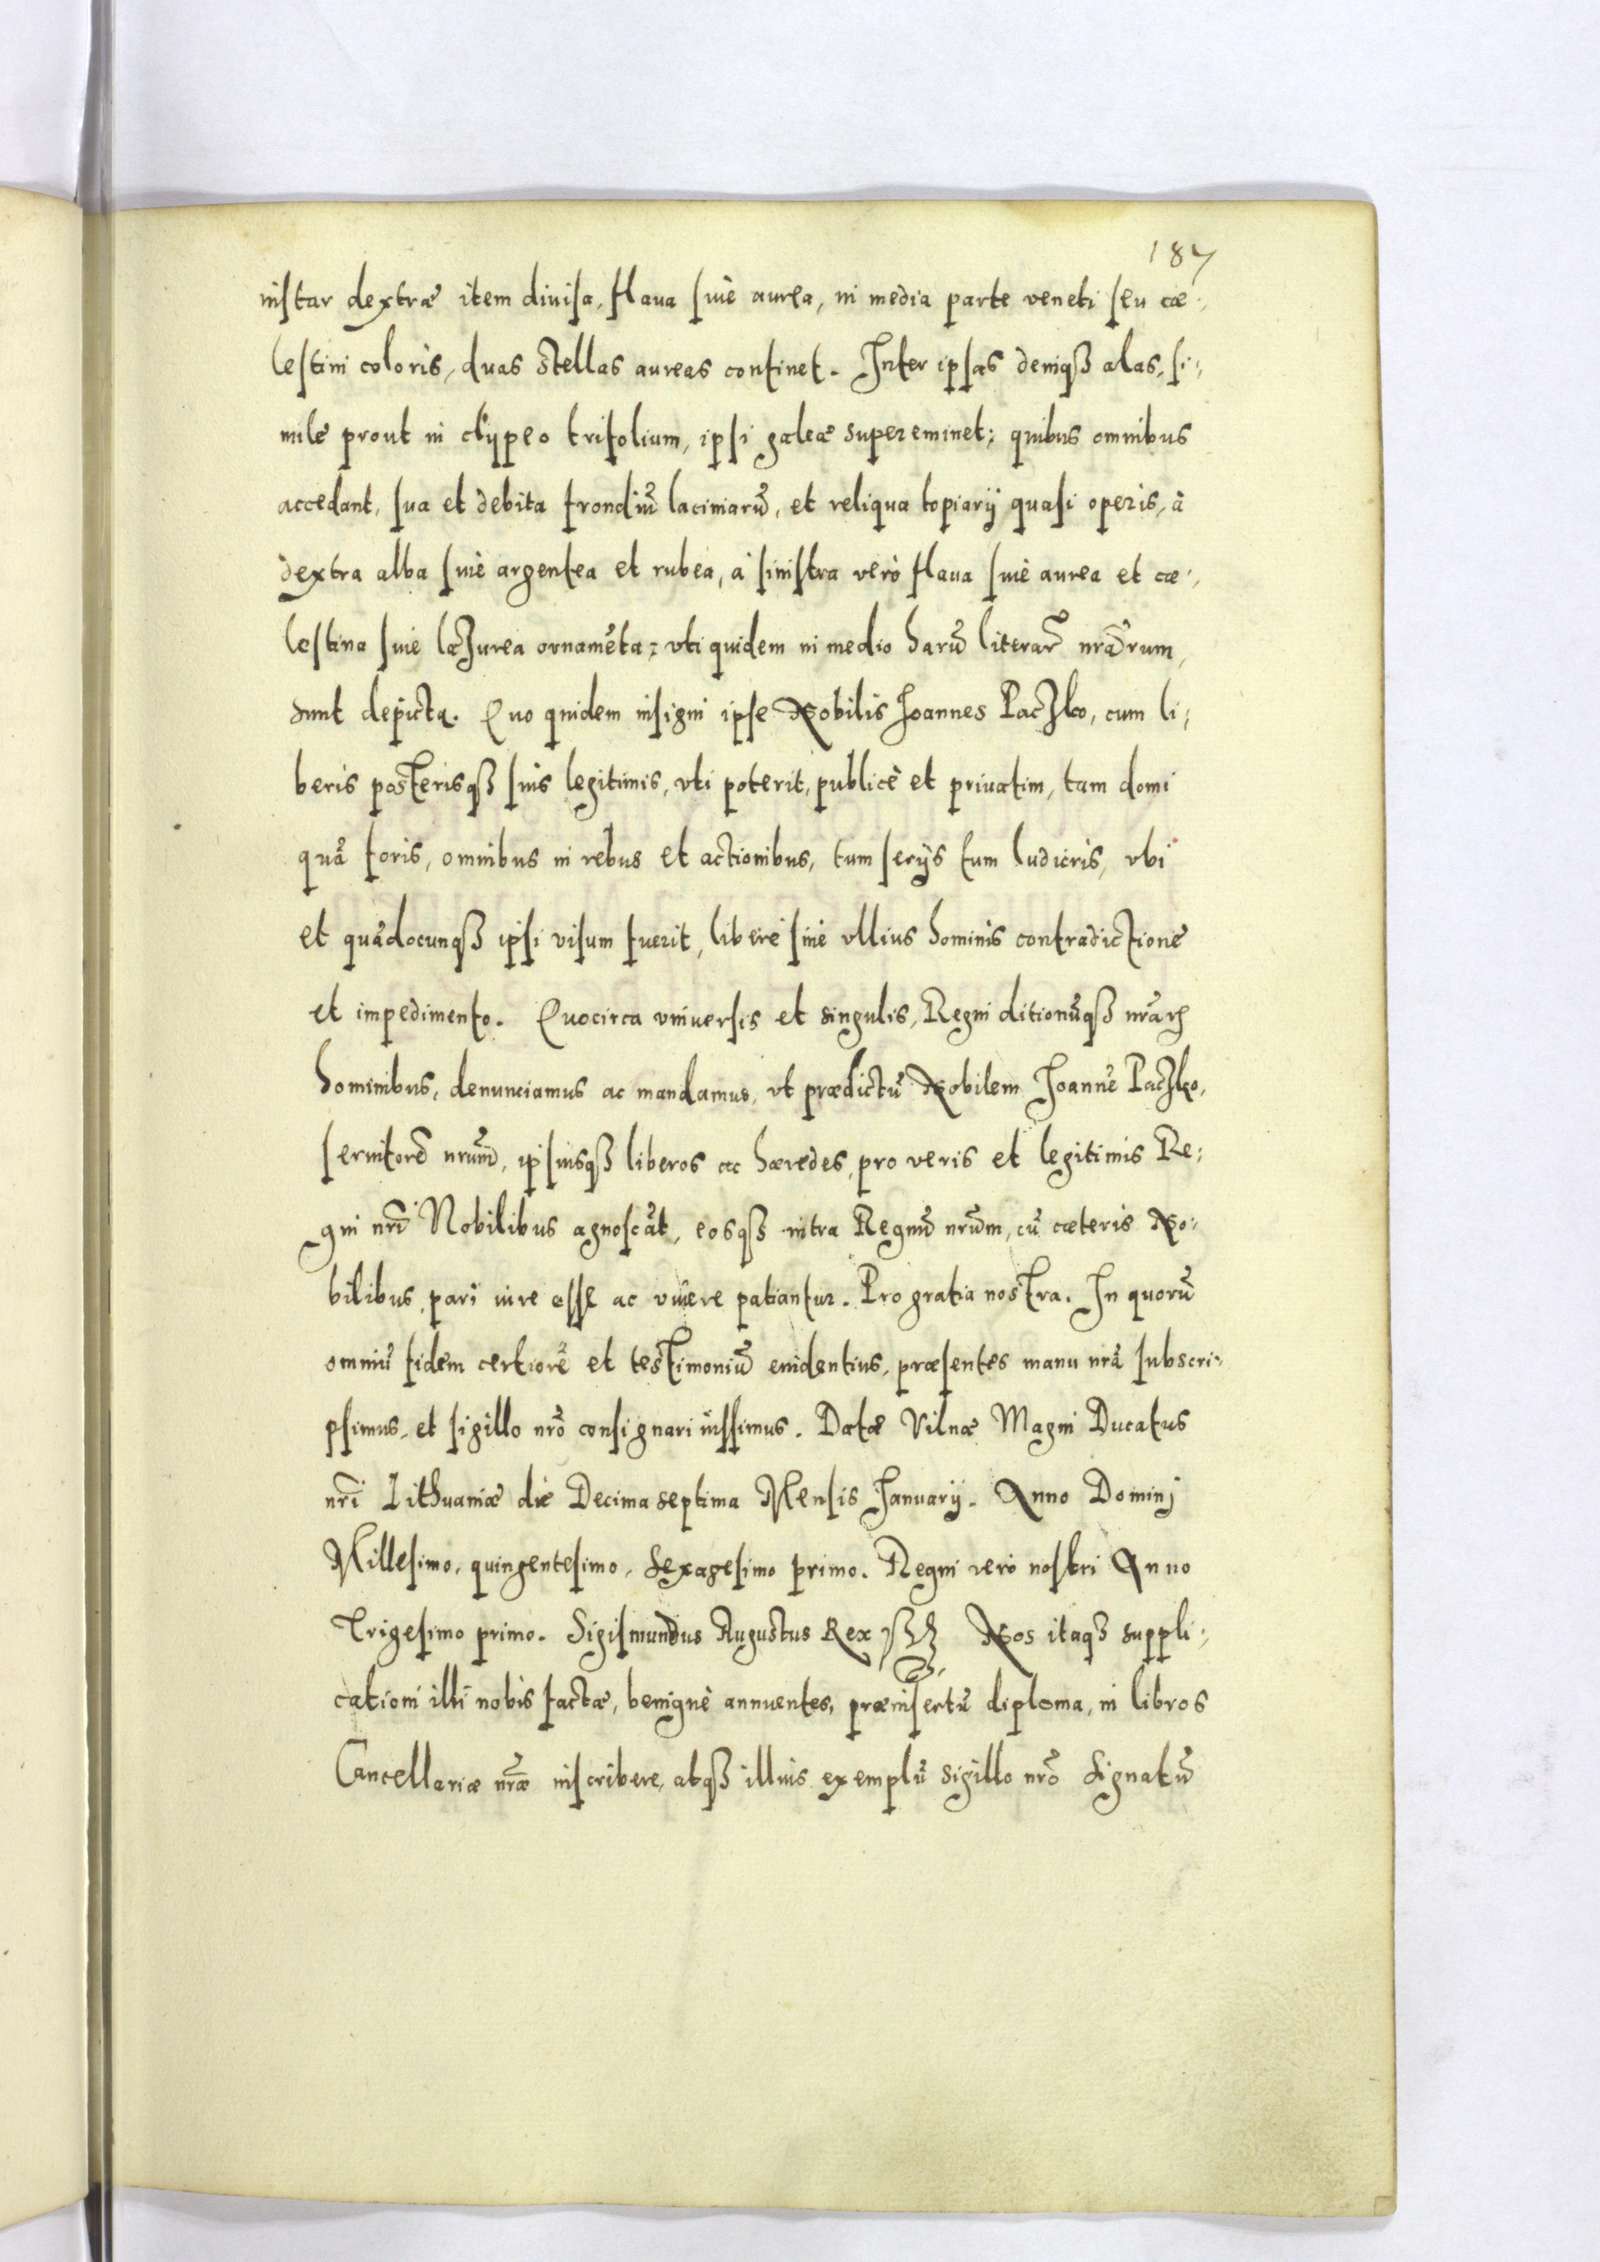 187
instar dextræ item diuisa, flaua siuè aurea, in media parte veneti seu cæ-
lestini coloris, duas stellas aureas continet. Inter ipsas deniqȝ alas, si-
mile prout in clypeo trifolium, ipsi galeæ supereminet; quibus omnibus
accedant, sua et debita frondiū laciniarū, et reliqua topiarij quasi operis, à
dextra alba siuè argentea et rubea, à sinistra verò flaua siuè aurea et cæ-
lestina siuè lazurea ornamēta: vti quidem in medio harū literar̄ nrārum,
sunt depicta. Quo quidem insigni ipse Nobilis Joannes Paczko, cum li-
beris posterisqȝ suis legitimis, vti poterit, publicè et priuatim, tam domi
quā foris, omnibus in rebus et actionibus, tum serijs tum ludicris, vbi
et quādocunqȝ ipsi visum fuerit, liberè sinè vllius hominis contradictionè
et impedimento. Quocirca vniuersis et singulis, Regni ditionūqȝ nrārꝝ
hominibus, denunciamus ac mandamus, vt prædictū Nobilem Joannē Paczko,
seruitorē nrūm, ipsiusqȝ liberos ac hæredes, pro veris et legitimis Re-
gni nrī Nobilibus agnoscāt, eosqȝ intra Regnū nrūm, cū cæteris No-
bilibus, pari iure esse ac viuere patiantur. Pro gratia nostra. In quorū
omniū fidem certiorē et testimoniū euidentius, præsentes manu nrā subscri-
psimus, et sigillo nrō consignari iussimus. Datæ Vilnæ Magni Ducatus
nrī Lithuaniæ diè Decima septima Mensis Januarij. Anno Dominj
Millesimo, quingentesimo, Sexagesimo primo. Regni verò nostri Anno
Trigesimo primo. Sigismundus Augustus Rex Nos itaqȝ suppli-
cationi illi nobis factæ, benignè annuentes, præinsertū diploma, in libros
Cancellariæ nrǣ inscribere, atqȝ illius exemplū sigillo nrō Signatū